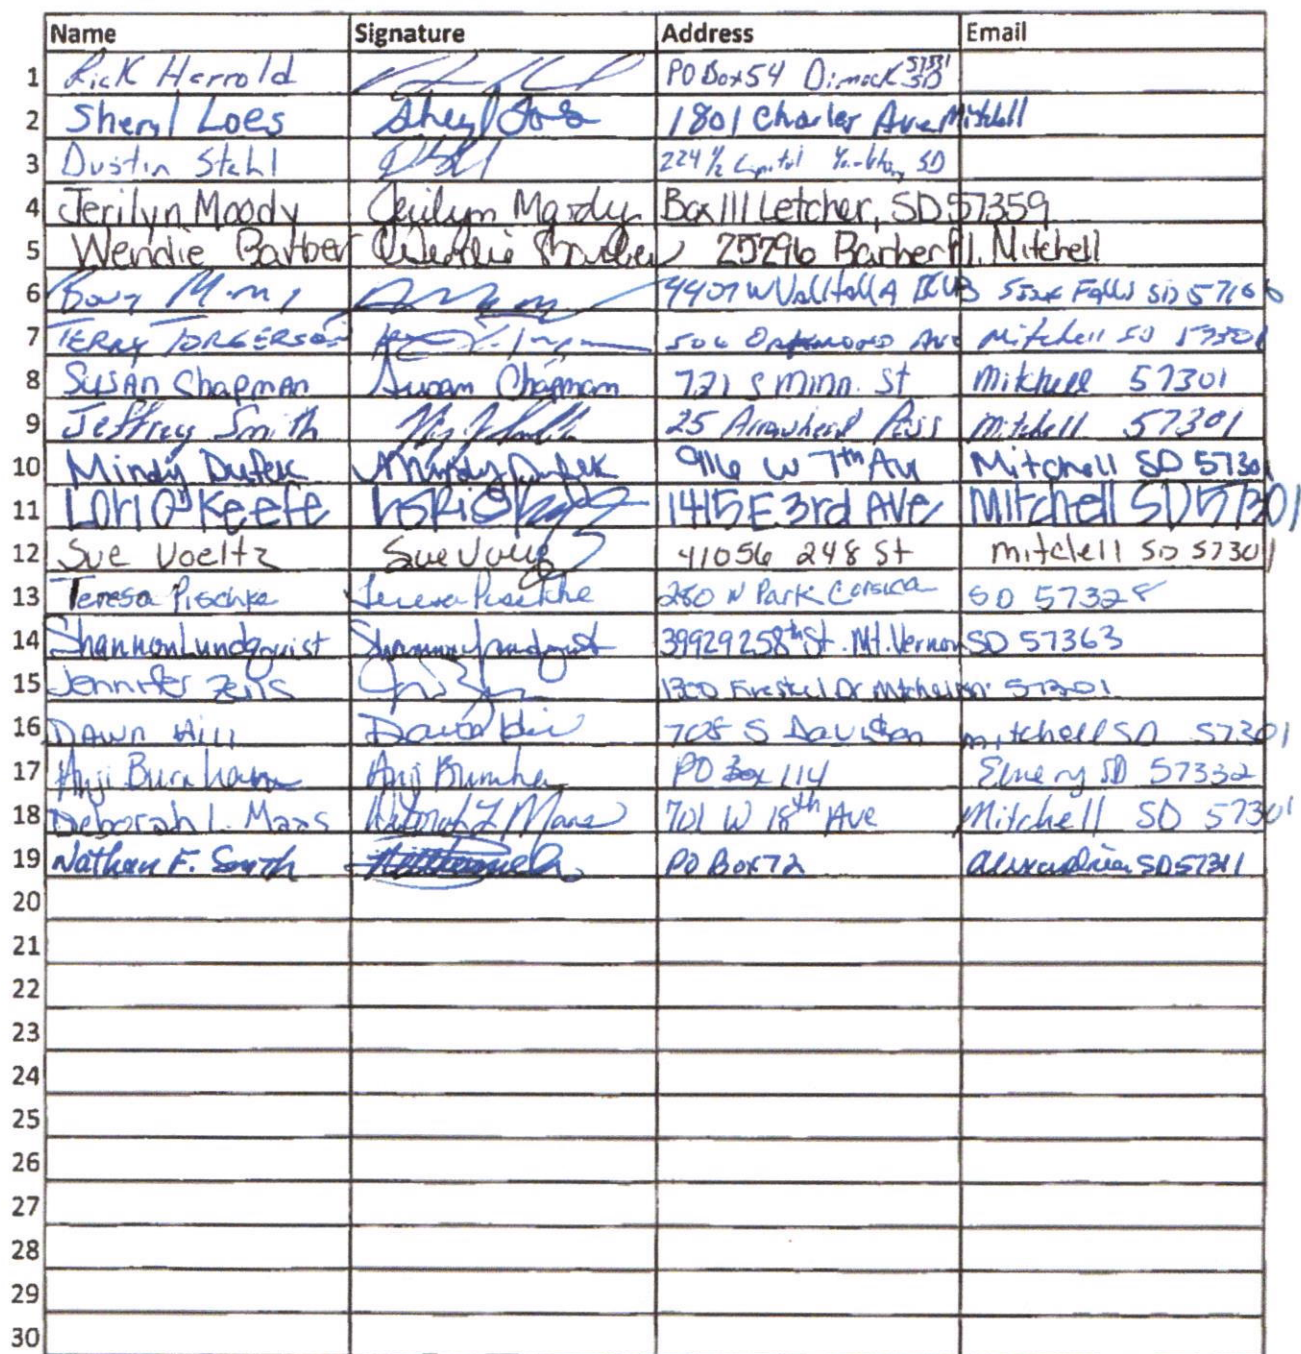 Name Signature Address Email
1 Rick Herrold PO Box 54 Dimock SD 57331
2 Sheryl Loes Sheryl Loes 1801 Charles Ave Mitchell
3 Dustin Stahl 224 1/2 Capital SD
4 Jerilyn Moody Jerilyn Moody Box 111 Letcher, SD 57359
5 Wendie Barber Wendie Barber 25296 Barber Pl. Mitchell
6 4407 W Valhalla BLVD Sioux Falls SD 57106
7 TERRY TORGERSON 506 Ave Mitchell SD 57301
8 SUSAN Chapman Susan Chapman 721 S Minn. St Mitchell 57301
9 Jeffrey Smith 25 Arrowhead Pass Mitchell 57301
10 Mindy Dufek Mindy Dufek 916 W 7th Av Mitchell SD 57301
11 Lori O'Keefe 1415 E 3rd Ave Mitchell SD 57301
12 Sue Voeltz Sue 41056 248 St mitclell SD 57301
13 Teresa Pischke Teresa Pischke 280 N Park Corsica SD 57328
14 Shannon Lundquist Shannon Lundquist 39929 258th St. Mt. Vernon SD 57363
15 Jennifer 1300 Dr 57301
16 DAWN Hill Dawn Hill 708 S Davison mitchell SD 57301
17 Anji Burnham Anji PO Box 114 Emery SD 57332
18 Deborah L. Maas Deborah L Maas 701 W 18th Ave Mitchell SD 57301
19 Nathan F. Smith PO Box 72 Alexandria SD 57311
20
21
22
23
24
25
26
27
28
29
30